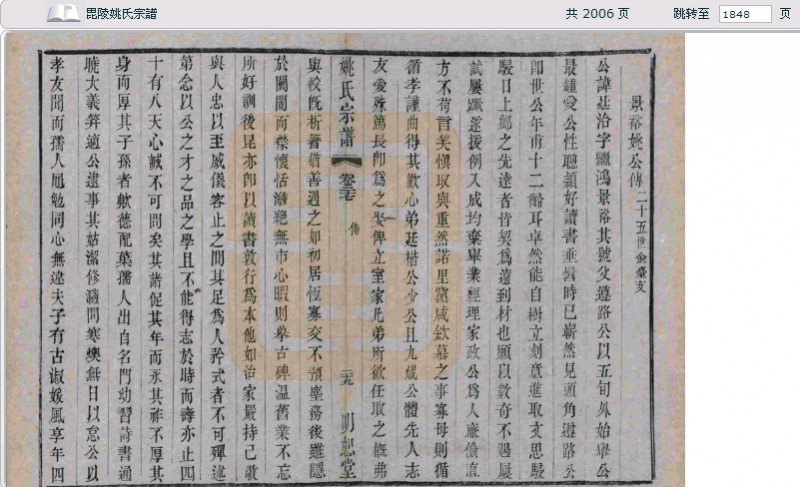 毘陵姚氏宗譜
共 2006 页
跳转至 1848 页
景裕姚公傳 二十五世金臺支
公諱基治字繼鴻景裕其號父遵路公以五旬外始舉公
最鍾愛公性聰穎好讀書垂髫時已嶄然見頭角遵路公
卽世公年甫十二齡耳卓然能自樹立刻意進取文思駸
駸日上鄉之先達者皆契為遠到材也顧以數奇不遇屢
試屢躓遂援例入成均棄舉業經理家政公為人廉儉直
方不苟言笑愼取與重然諾里黨咸欽慕之事寡母則循
循孝謹曲得其歡心弟廷楷公少公且九歲公體先人志
友愛彌篤長卽為之娶俾立室家凡弟所欲任取之慨弗
姚氏宗譜 卷三七 傳 三九 明恕堂
與較旣析箸猶善遇之如初居恆寡交不預塵務後雖隱
於闤闠而襟懷恬澹絕無市心暇則摹古碑温舊業不忘
所好訓後昆亦卽以讀書敦行為本他如治家嚴持己敬
與人忠以至威儀容止之間其足為人矜式者不可殫述
第念以公之才之品之學且不能得志於時而壽亦止四
十有八天心誠不可問矣其諸促其年而永其祚不厚其
身而厚其子孫者歟德配葉孺人出自名門幼習詩書通
曉大義筓適公逮事其姑潔修瀡問寒燠無日以怠公以
孝友聞而孺人黽勉同心無違夫子有古淑媛風享年四